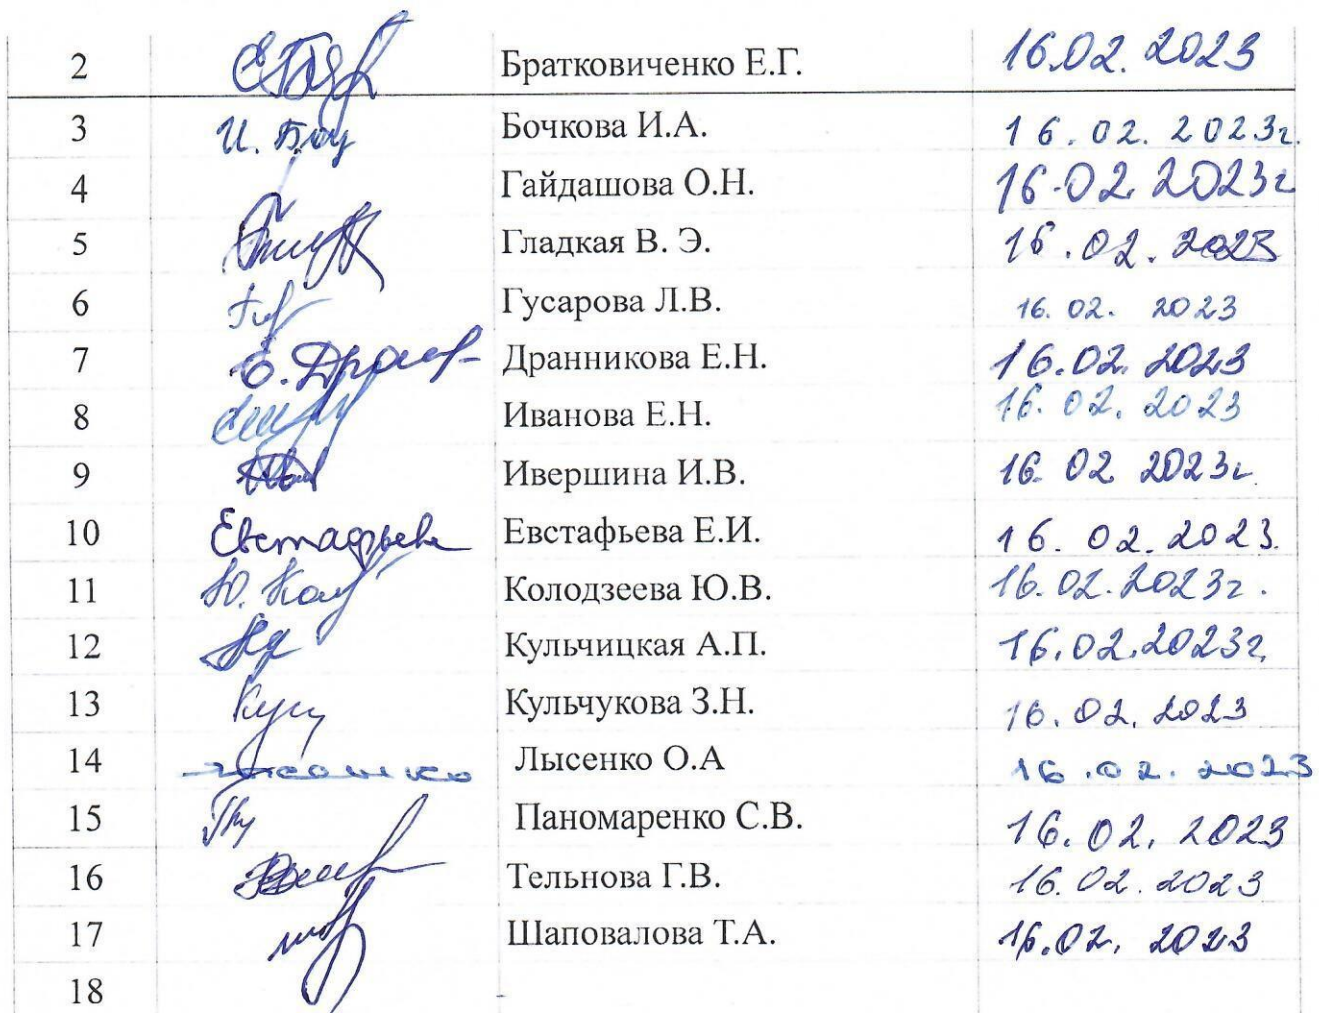 2 Братковиченко Е.Г. 16.02.2023
3 И. Боч Бочкова И.А. 16.02.2023г.
4 Гайдашова О.Н. 16.02.2023г
5 Гладкая В. Э. 16.02.2023
6 Гусарова Л.В. 16.02. 2023
7 Дранникова Е.Н. 16.02.2023
8 Иванова Е.Н. 16.02.2023
9 Ивершина И.В. 16.02 2023г.
10 Евстафьева Евстафьева Е.И. 16.02.2023.
11 Колодзеева Ю.В. 16.02.2023г.
12 Кульчицкая А.П. 16.02.2023г.
13 Кульчукова З.Н. 16.02.2023
14 Лысенко О.А 16.02.2023
15 Паномаренко С.В. 16.02.2023
16 Тельнова Г.В. 16.02.2023
17 Шаповалова Т.А. 16.02.2023
18